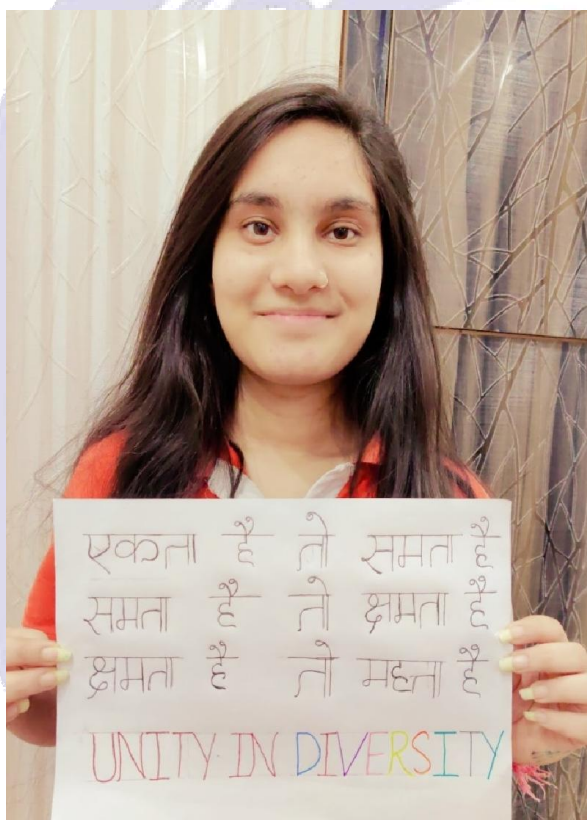 एकता है तो समता है
समता है तो क्षमता है
क्षमता है तो महत्ता है
UNITY IN DIVERSITY